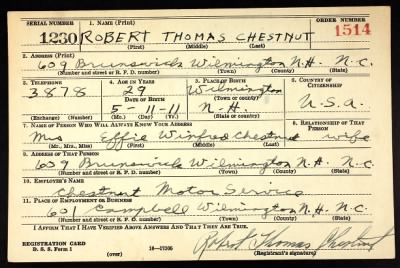 SERIAL NUMBER 1. NAME (Print) ORDER NUMBER
1230 ROBERT THOMAS CHESTNUT 1514
(First) (Middle) (Last)
2. ADDRESS (Print)
609 Brunswick Wilmington N.H. N.C.
(Number and street or R. F. D. number) (Town) (County) (State)
3. TELEPHONE 4. AGE IN YEARS 5. PLACE OF BIRTH 6. COUNTRY OF CITIZENSHIP
3878 29 Wilmington
DATE OF BIRTH (Town or county)
5-11-11 N.H. U.S.A.
(Exchange) (Number) (Mo.) (Day) (Yr.) (State or country)
7. NAME OF PERSON WHO WILL ALWAYS KNOW YOUR ADDRESS 8. RELATIONSHIP OF THAT PERSON
Mrs Effie Winfred Chestnut wife
(Mr., Mrs., Miss) (First) (Middle) (Last)
9. ADDRESS OF THAT PERSON
609 Brunswick Wilmington N.H. N.C.
(Number and street or R. F. D. number) (Town) (County) (State)
10. EMPLOYER'S NAME
Chestnut Motor Service
11. PLACE OF EMPLOYMENT OR BUSINESS
601 Campbell Wilmington N.H. N.C.
(Number and street or R. F. D. number) (Town) (County) (State)
I AFFIRM THAT I HAVE VERIFIED ABOVE ANSWERS AND THAT THEY ARE TRUE.
REGISTRATION CARD
D. S. S. Form 1 (over) 16-17105 Robert Thomas Chestnut
(Registrant's signature)